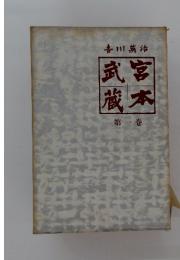 吉川英治
宮本
武蔵
第一巻